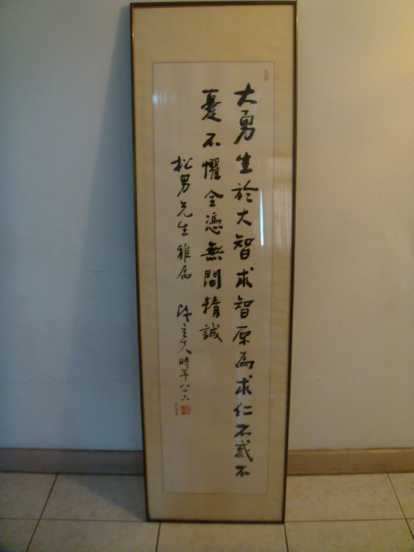 大勇生於大智求智原為求仁不惑不
憂不懼全憑無間精誠
松男先生雅屬
陳立夫時年八六